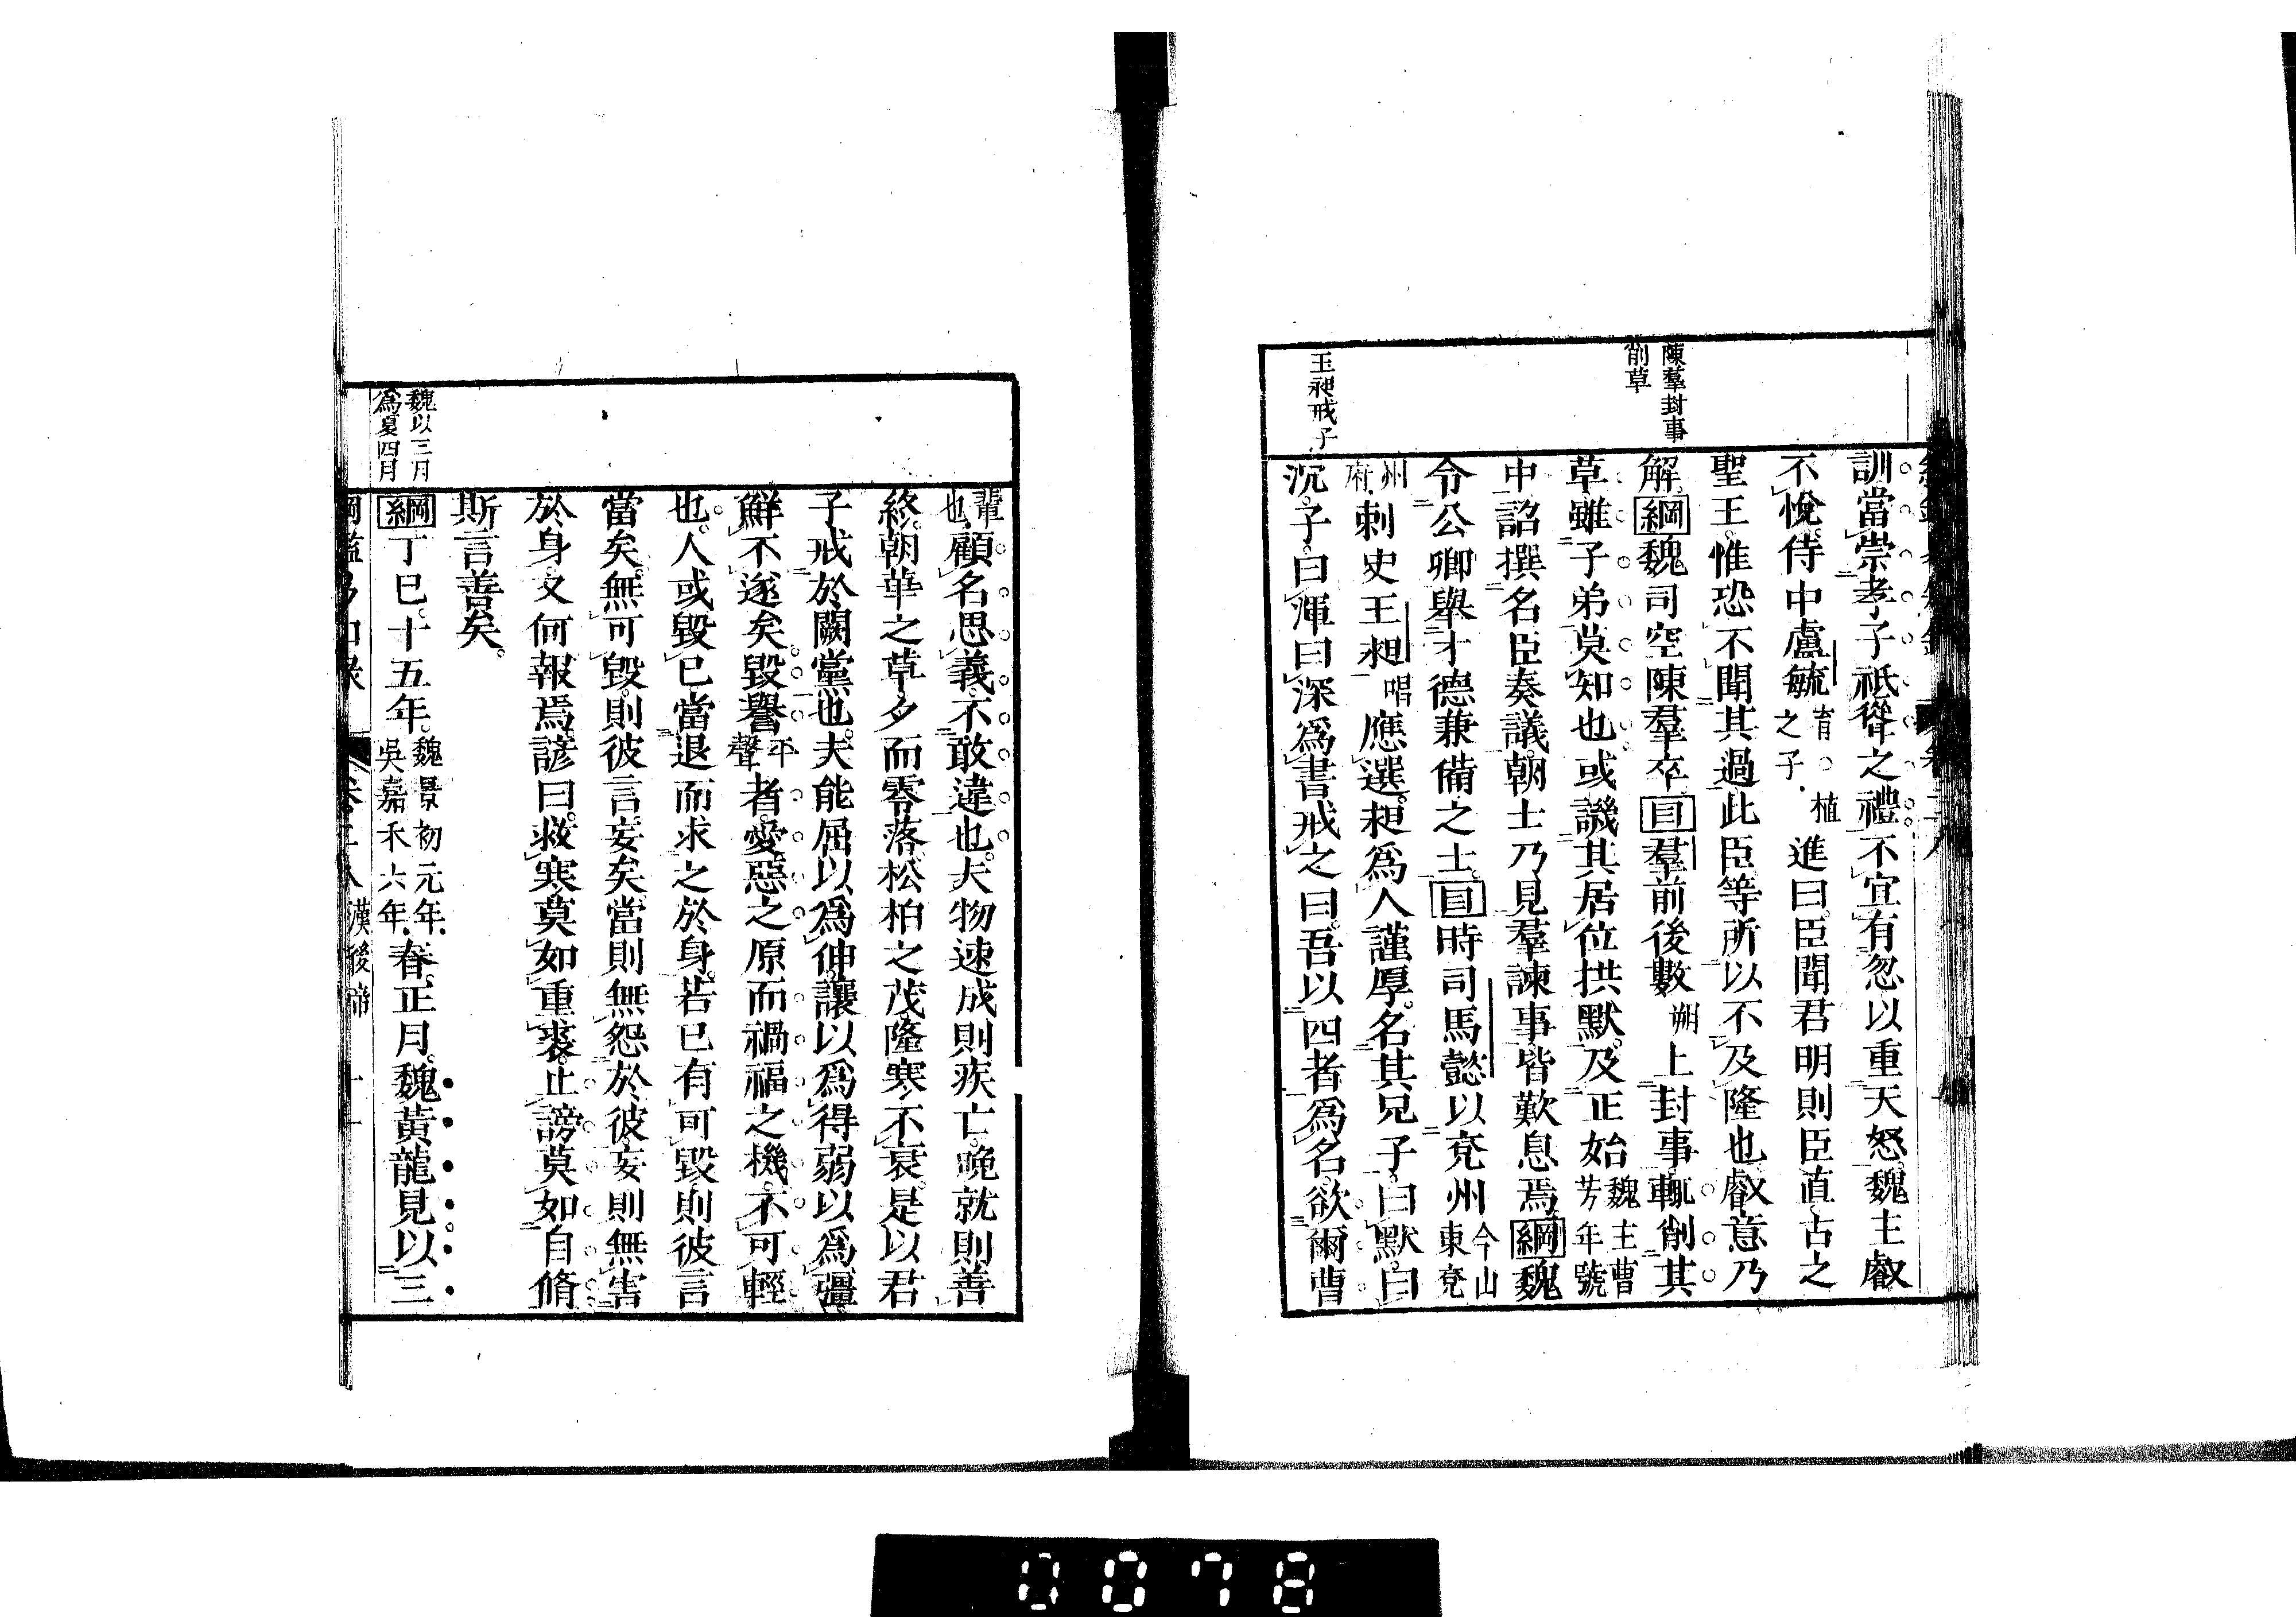 陳羣封事
削草
王昶戒子
訓當崇孝子祇聳之禮不宜有忽以重天怒魏主叡
不悅侍中盧毓育○植之子進曰臣聞君明則臣直古之
聖王惟恐不聞其過此臣等所以不及隆也叡意乃
解綱魏司空陳羣卒目羣前後數朔上封事輒削其
草雖子弟莫知也或譏其居位拱默及正始魏主曹芳年號
中詔撰名臣奏議朝士乃見羣諫事皆歎息焉綱魏
令公卿舉才德兼備之士目時司馬懿以兗州今山東兗
州府刺史王昶唱應選昶爲人謹厚名其兄子曰默曰
沉子曰渾曰深爲書戒之曰吾以四者爲名欲爾曹
輩也顧名思義不敢違也夫物速成則疾亡晚就則善
終朝華之草夕而零落松柏之茂隆寒不衰是以君
子戒於闕黨也夫能屈以爲伸讓以爲得弱以爲彊
鮮不遂矣毀譽平聲者愛惡之原而禍福之機不可輕
也人或毀己當退而求之於身若己有可毀則彼言
當矣無可毀則彼言妄矣當則無怨於彼妄則無害
於身又何報焉諺曰救寒莫如重裘止謗莫如自脩
斯言善矣
魏以三月
爲夏四月
綱丁巳十五年魏景初元年吳嘉禾六年春正月魏黃龍見以三
漢後帝
0078